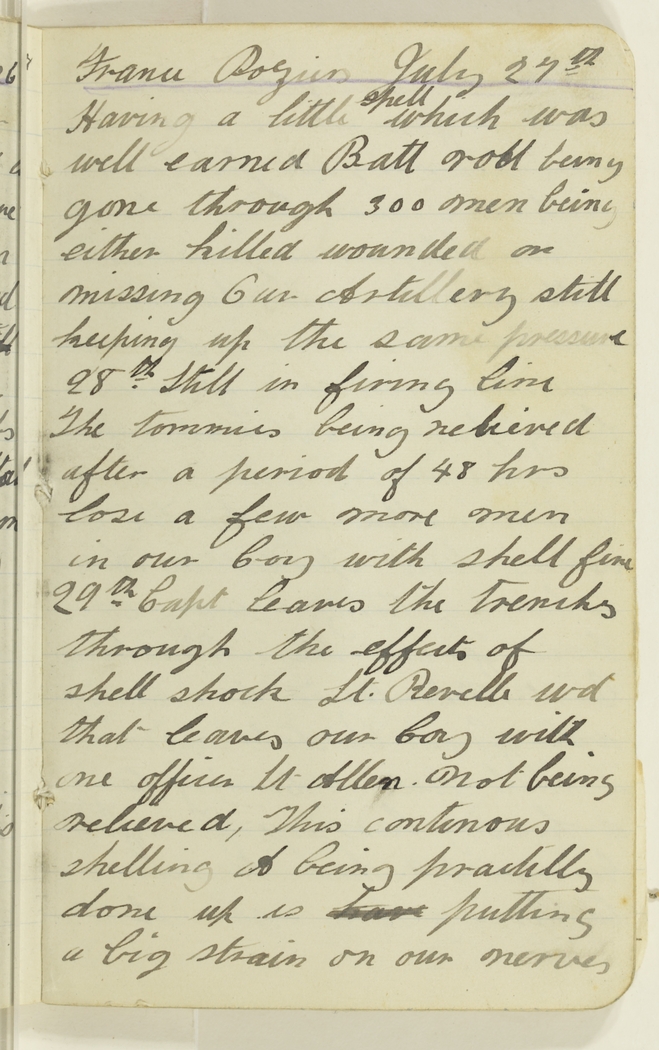 France Pozieres July 27th
Having a little spell which was
well earned Batt roll being
gone through 300 men being
either killed wounded or
missing Our Artillery still
keeping up the same pressure
28th Still in firing line
The tommies being relieved
after a period of 48 hrs
lose a few more men
in our Coy with shell fire
29th Capt leaves the trenches
through the effects of
shell shock Lt. Revell wd
that leaves our Coy with
one officer Lt Allen. not being
relieved, This continous
shelling & being practilly
done up is have putting
a big strain on our nerves